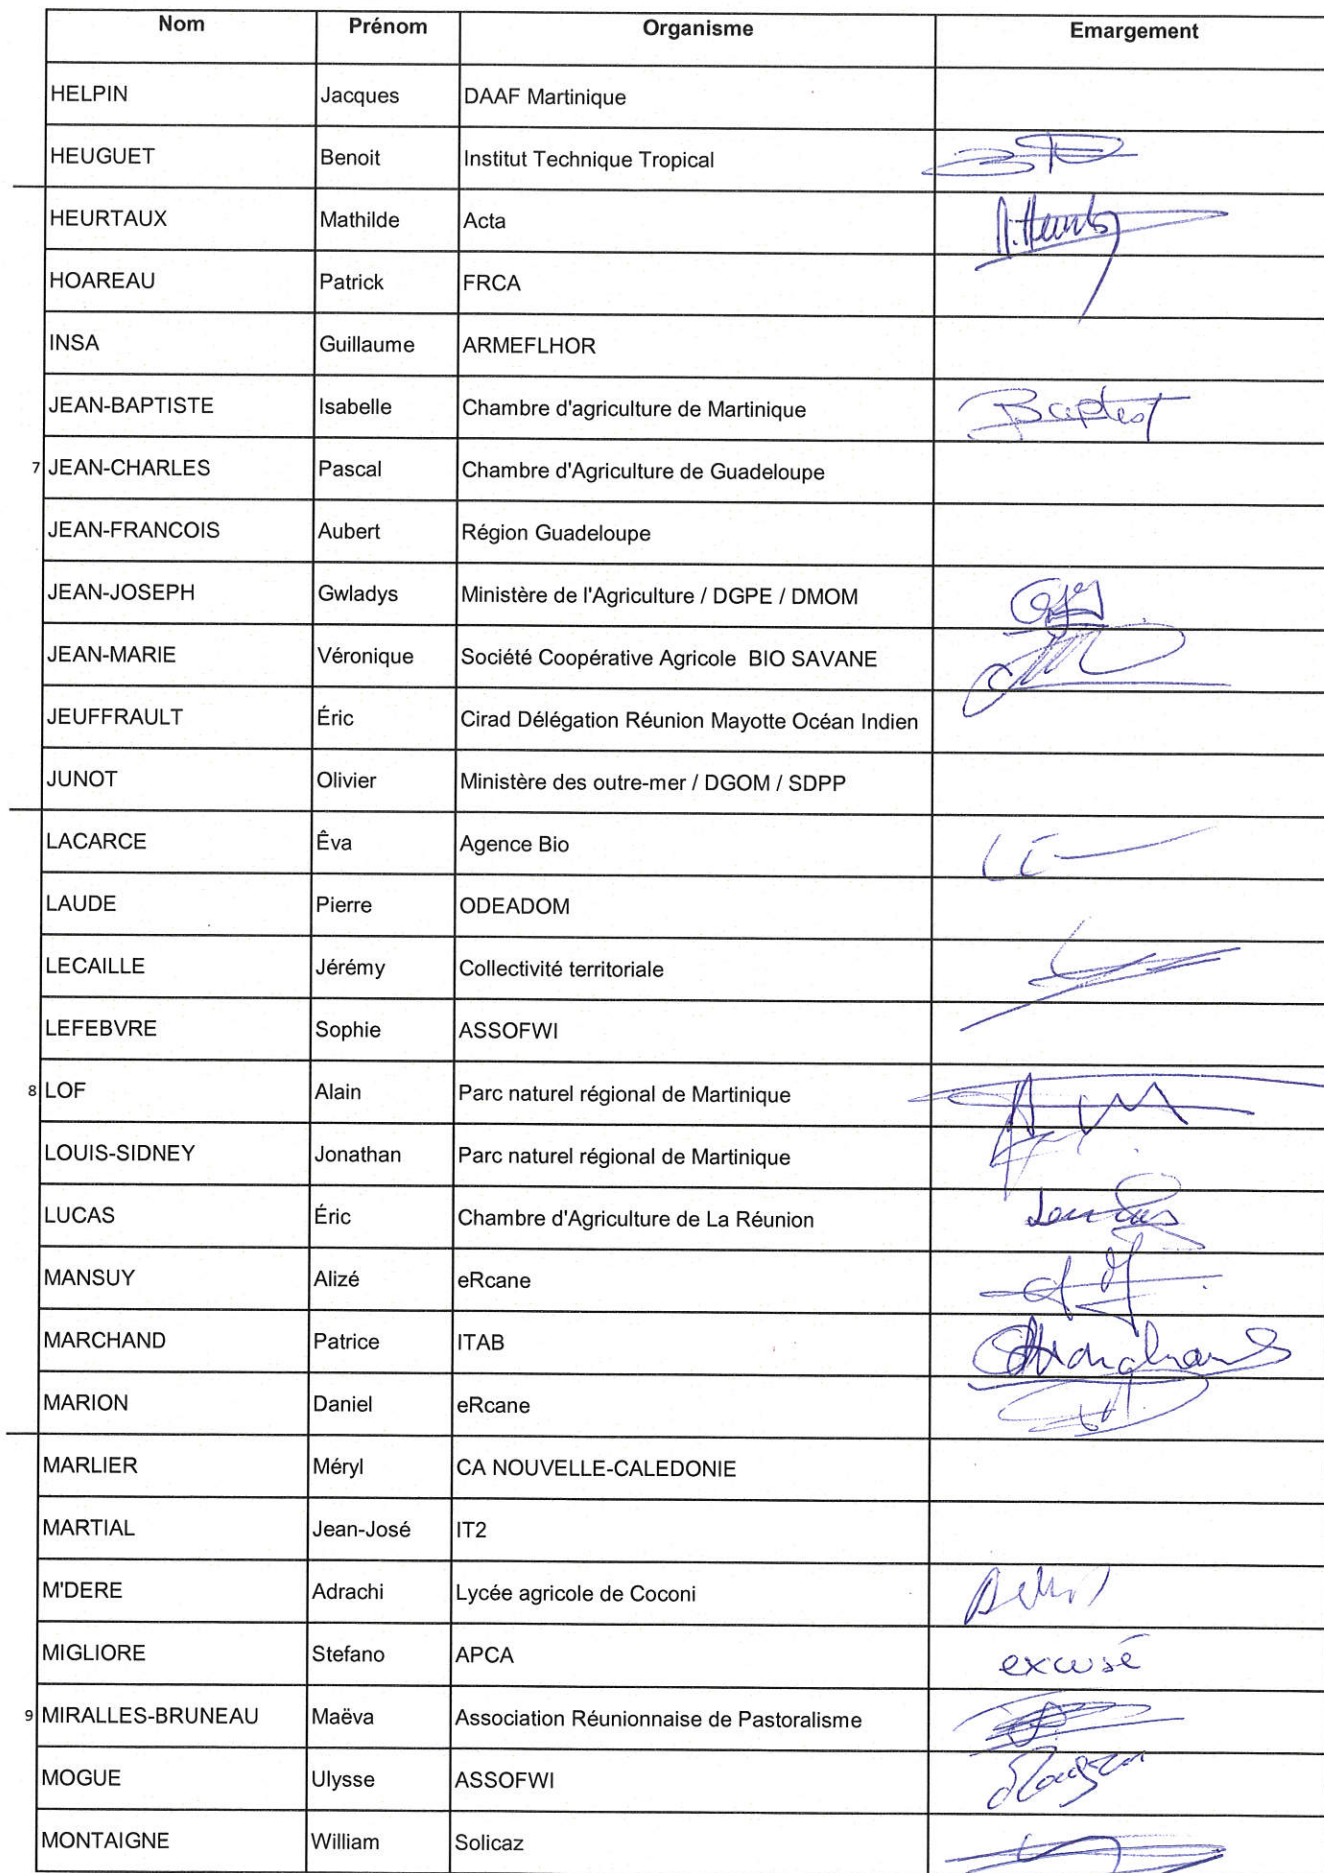 Nom Prénom Organisme Emargement
HELPIN Jacques DAAF Martinique
HEUGUET Benoit Institut Technique Tropical
HEURTAUX Mathilde Acta
HOAREAU Patrick FRCA
INSA Guillaume ARMEFLHOR
JEAN-BAPTISTE Isabelle Chambre d'agriculture de Martinique
7 JEAN-CHARLES Pascal Chambre d'Agriculture de Guadeloupe
JEAN-FRANCOIS Aubert Région Guadeloupe
JEAN-JOSEPH Gwladys Ministère de l'Agriculture / DGPE / DMOM
JEAN-MARIE Véronique Société Coopérative Agricole BIO SAVANE
JEUFFRAULT Éric Cirad Délégation Réunion Mayotte Océan Indien
JUNOT Olivier Ministère des outre-mer / DGOM / SDPP
LACARCE Êva Agence Bio
LAUDE Pierre ODEADOM
LECAILLE Jérémy Collectivité territoriale
LEFEBVRE Sophie ASSOFWI
8 LOF Alain Parc naturel régional de Martinique
LOUIS-SIDNEY Jonathan Parc naturel régional de Martinique
LUCAS Éric Chambre d'Agriculture de La Réunion
MANSUY Alizé eRcane
MARCHAND Patrice ITAB
MARION Daniel eRcane
MARLIER Méryl CA NOUVELLE-CALEDONIE
MARTIAL Jean-José IT2
M'DERE Adrachi Lycée agricole de Coconi
MIGLIORE Stefano APCA excusé
9 MIRALLES-BRUNEAU Maëva Association Réunionnaise de Pastoralisme
MOGUE Ulysse ASSOFWI
MONTAIGNE William Solicaz